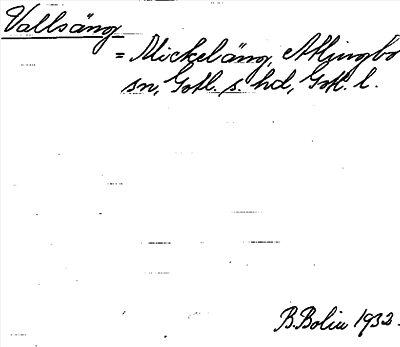 Vallsäng
= Mickeläng, Atlingbo
sn, Gotl. s. hd, Gotl. l.
B. Bolin 1932.